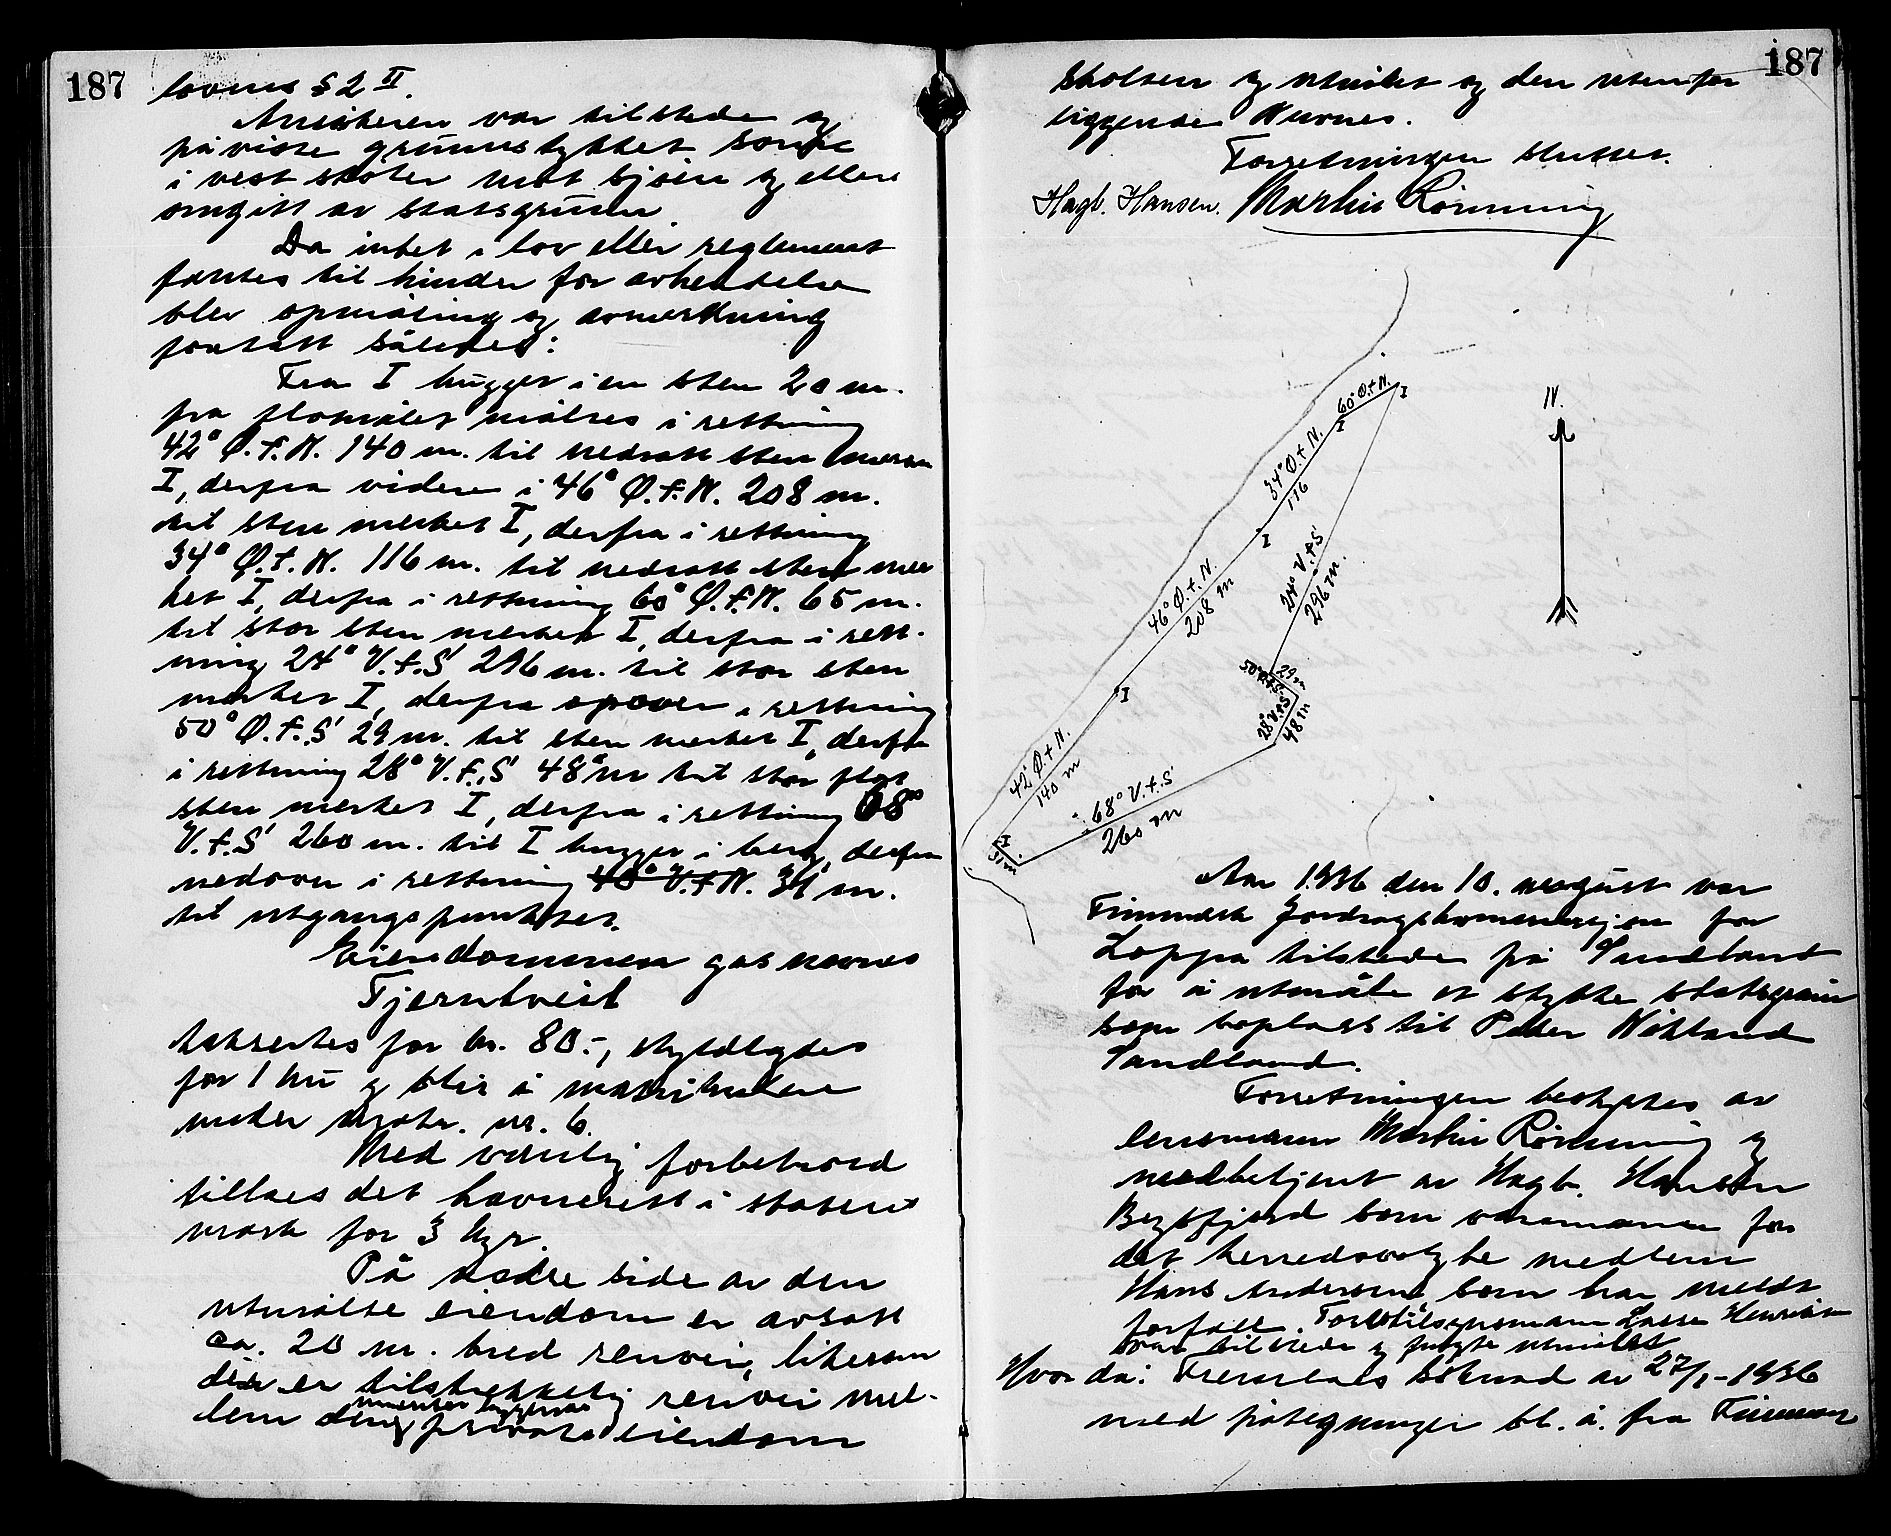 187
lovens § 2 II.
Ansökeren var tilstede og
påviste grunnstykket som
i vest støter mot sjøen og ellers
omgitt av statsgrunn.
Da intet i lov eller reglement
fantes til hinder for avhendelse
blev opmåling og avmerkning
foretatt således:
Fra I hugget i en sten 20 m.
fra flomålet måltes i rettning
42° Ø.f.N. 140 m. til nedsatt sten merket
I, derfra videre i 46° Ø.f.N. 208 m.
til sten merket I, derfra i rettning
34° Ø.f.N. 116 m. til nedsatt sten mer
ket I, derfra i rettning 60° Ø.f.N. 65 m.
til stor sten merket I, derfra i rett-
ning 24° V.f.S 296 m. til stor sten
merket I, derfra opover i rettning
50° Ø.f.S 29 m. til sten merket I, derfra
i rettning 28° V.f.S 48 m til stor flat
sten merket I, derfra i rettning 68°
V.f.S 260 m. til I hugget i berg, derfra
nedover i rettning V.f.N. 31 m.
til utgangspunktet.
Eiendommen gas navnet
Fjerntveit
taksertes for kr. 80.-, skyldlagdes
for 1 øre og blir å matrikulere
under
Med vanlig forbehold
tillaes det havnerett i statens
mark for 3 kyr.
På nedre side av den
utmålte eiendom er avsatt
ca. 20 m. bred renvei, likesom
der er tilstrekkelig renvei mel-
lem den ovenfor liggende private eiendom
187
Skolten og utmålet og den utenfor
liggende Nurnes.
Forretningen sluttet.
Hagb. Hansen. Martin Rønning
N.
60° Ø.f.N.
I
I
34° Ø.f.N.
116
I
24° V.f.S
296 m.
46° Ø.f.N.
208 m
50° Ø.f.S.
29 m
28° V.f.S
48 m
I
42° Ø.f.N.
140 m
68° V.f.S
260 m
I
31 m.
Aar 1936 den 10. august var
Finnmark Jordsalgskommisjon for
Loppa tilstede på Sandland
for å utmåle et stykke statsgrunn
som boplass til Peder Wikland
Sandland.
Forretningen bestyrtes av
lensmann Martin Rønning og
medbetjent av Hagb. Hansen
Bergsfjord som varamann for
det herredsvalgte medlem
Hans Andersen som har meldt
forfall. Forstilsynsmann Lasse Henriksen
var tilstede og fulgte utmålet
Hvorda: Fremlaes søknad av 27/1-1936
med påtegninger bl. a. fra Finnmar